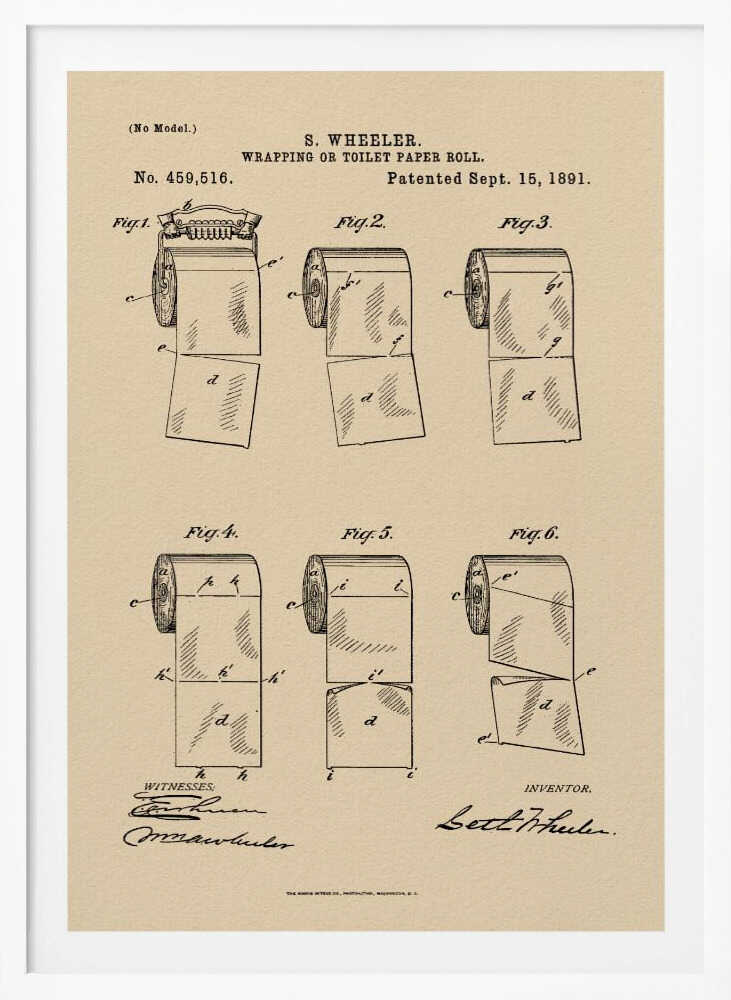 (No Model.)
S. WHEELER.
WRAPPING OR TOILET PAPER ROLL.
No. 459,516.
Patented Sept. 15, 1891.
Fig.1.
Fig.2.
Fig.3.
b
a
e'
c
e
d
a
c
f'
f
d
a
c
g'
g
d
Fig.4.
Fig.5.
Fig.6.
a
h
h
c
h'
h'
h'
d
h
h
a
i
i
c
i'
d
i
i
a
e'
c
e
d
e'
WITNESSES:
INVENTOR.
Seth Wheeler.
THE NORRIS PETERS CO., PHOTO-LITHO., WASHINGTON, D. C.